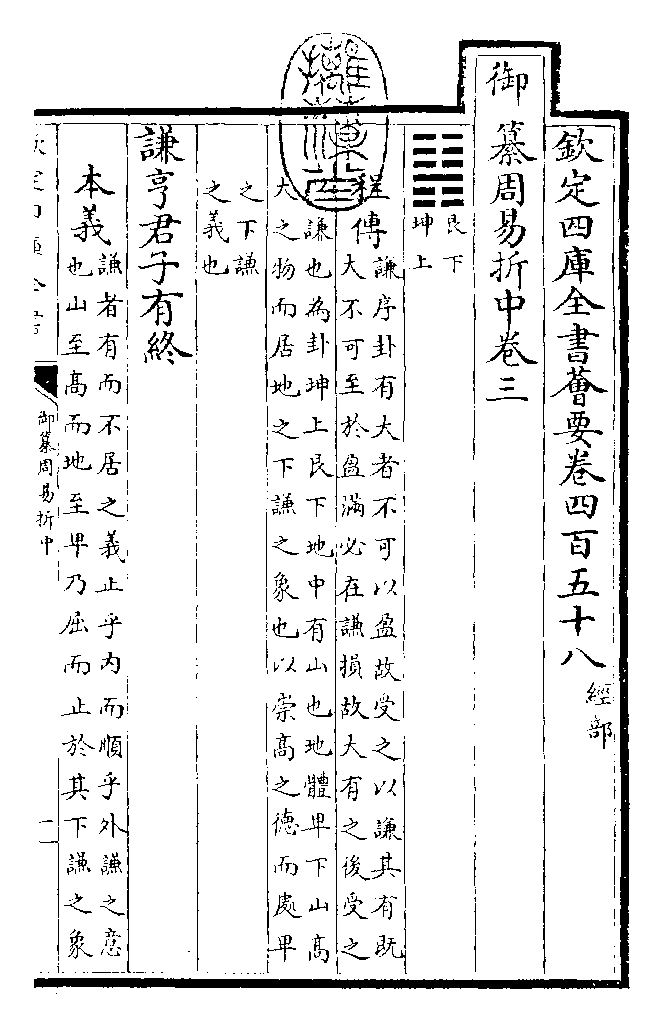 欽定四庫全書薈要卷四百五十八 經部
御纂周易折中卷三
艮下
坤上
程傳
謙序卦有大者不可以盈故受之以謙其有既
大不可至於盈滿必在謙損故大有之後受之
以謙也為卦坤上艮下地中有山也地體卑下山高
大之物而居地之下謙之象也以崇高之德而處卑
之下謙
之義也
謙亨君子有終
本義
謙者有而不居之義止乎內而順乎外謙之意
也山至高而地至卑乃屈而止於其下謙之象
御纂周易折中